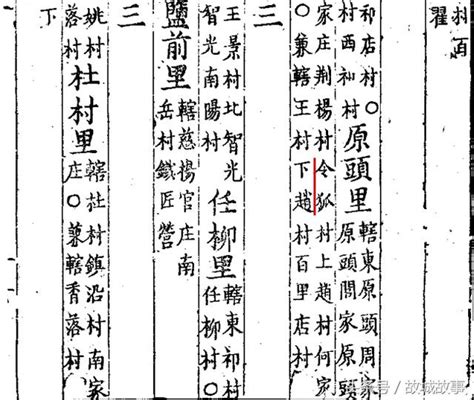 百
翟
祁店村○
村西和村
原頭里
轄東原頭周
原頭問家原頭
家庄荆楊村令狐村上趙村何家
○兼轄王村下趙村百里店村
三
王景村北智光
智光南陽村
任柳里
轄東祁村
任柳村○
鹽前里
轄慈楊官庄南
岳村鐵匠營
三
姚村
落村
杜村里
轄杜村鎮沿村南家
庄○兼轄香落村
下
头条号/故城故事